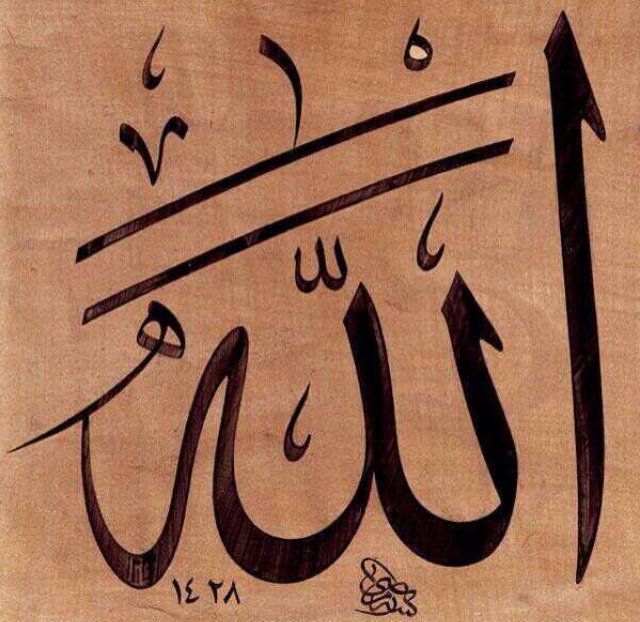 الله
١٤٢٨